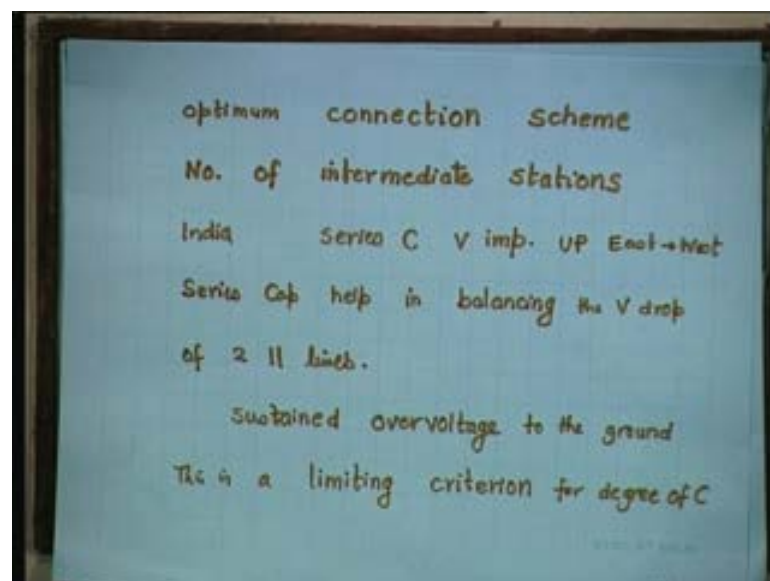 optimum connection scheme
No. of intermediate stations
India Series C V imp. UP East→West
Series Cap help in balancing the V drop
of 2 11 lines.
Sustained overvoltage to the ground
This is a limiting criterion for degree of C